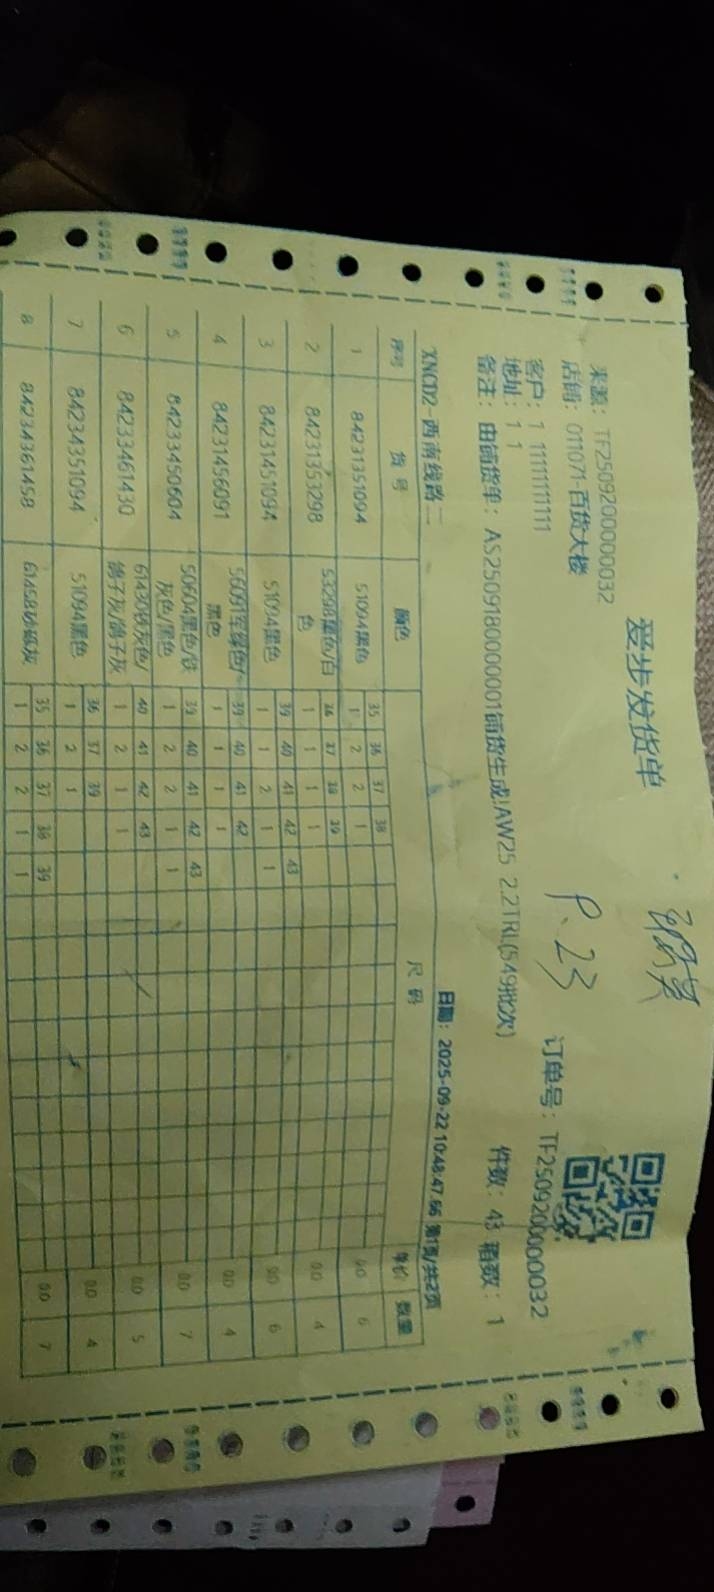 爱步发货单
来源: TF2509200000032
订单号: TF2509200000032
店铺: 011071-百货大楼
P.23
客户: 1 11111111111
地址: 1 1
件数: 43 箱数: 1
备注: 由铺货单: AS2509180000001铺货生成!AW25 2.2TRL(549批次)
XNCD2-西南线路二
日期: 2025-09-22 10:48:47.66 第1页/共2页
序号 货号 颜色 尺码 单价 数量
35 36 37 38
1 84231351094 51094黑色 1 2 2 1 0.0 6
36 37 38 39
2 84231353298 53298黑色/白色 1 1 1 1 0.0 4
39 40 41 42 43
3 84231451094 51094黑色 1 1 2 1 1 0.0 6
39 40 41 42
4 84231456091 56091军绿色/黑色 1 1 1 1 0.0 4
39 40 41 42 43
5 84233450604 50604黑色/铁灰色/黑色 1 2 2 1 1 0.0 7
40 41 42 43
6 84233461430 61430铁灰色/鸽子灰/鸽子灰 1 2 1 1 0.0 5
36 37 39
7 84234351094 51094黑色 1 2 1 0.0 4
35 36 37 38 39
8 84234361458 61458砂砾灰 1 2 2 1 1 0.0 7